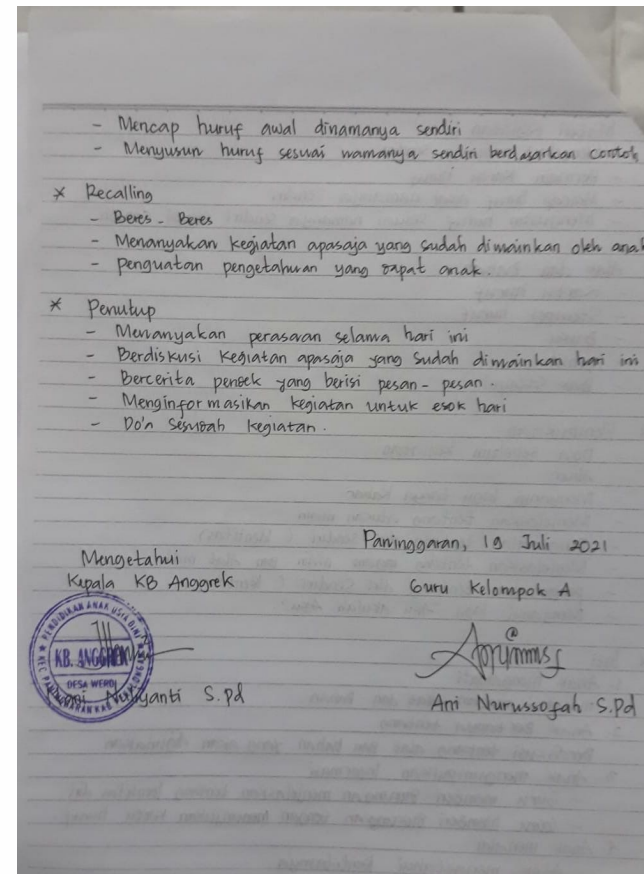 - Mencap huruf awal dinamanya sendiri
- Menyusun huruf sesuai namanya sendiri berdasarkan contoh
* Recalling
- Beres - Beres
- Menanyakan kegiatan apasaja yang sudah dimainkan oleh anak
- penguatan pengetahuan yang dapat anak.
* Penutup
- Menanyakan perasaan selama hari ini
- Berdiskusi kegiatan apasaja yang sudah dimainkan hari ini
- Bercerita pendek yang berisi pesan - pesan.
- Menginformasikan kegiatan untuk esok hari
- Do'a sesudah kegiatan.
Paninggaran, 19 Juli 2021
Mengetahui
Kepala KB Anggrek
Guru Kelompok A
PENDIDIKAN ANAK USIA DINI
KB. ANGGREK
DESA WERDI
S.Pd
Ani Nurussofah S.Pd